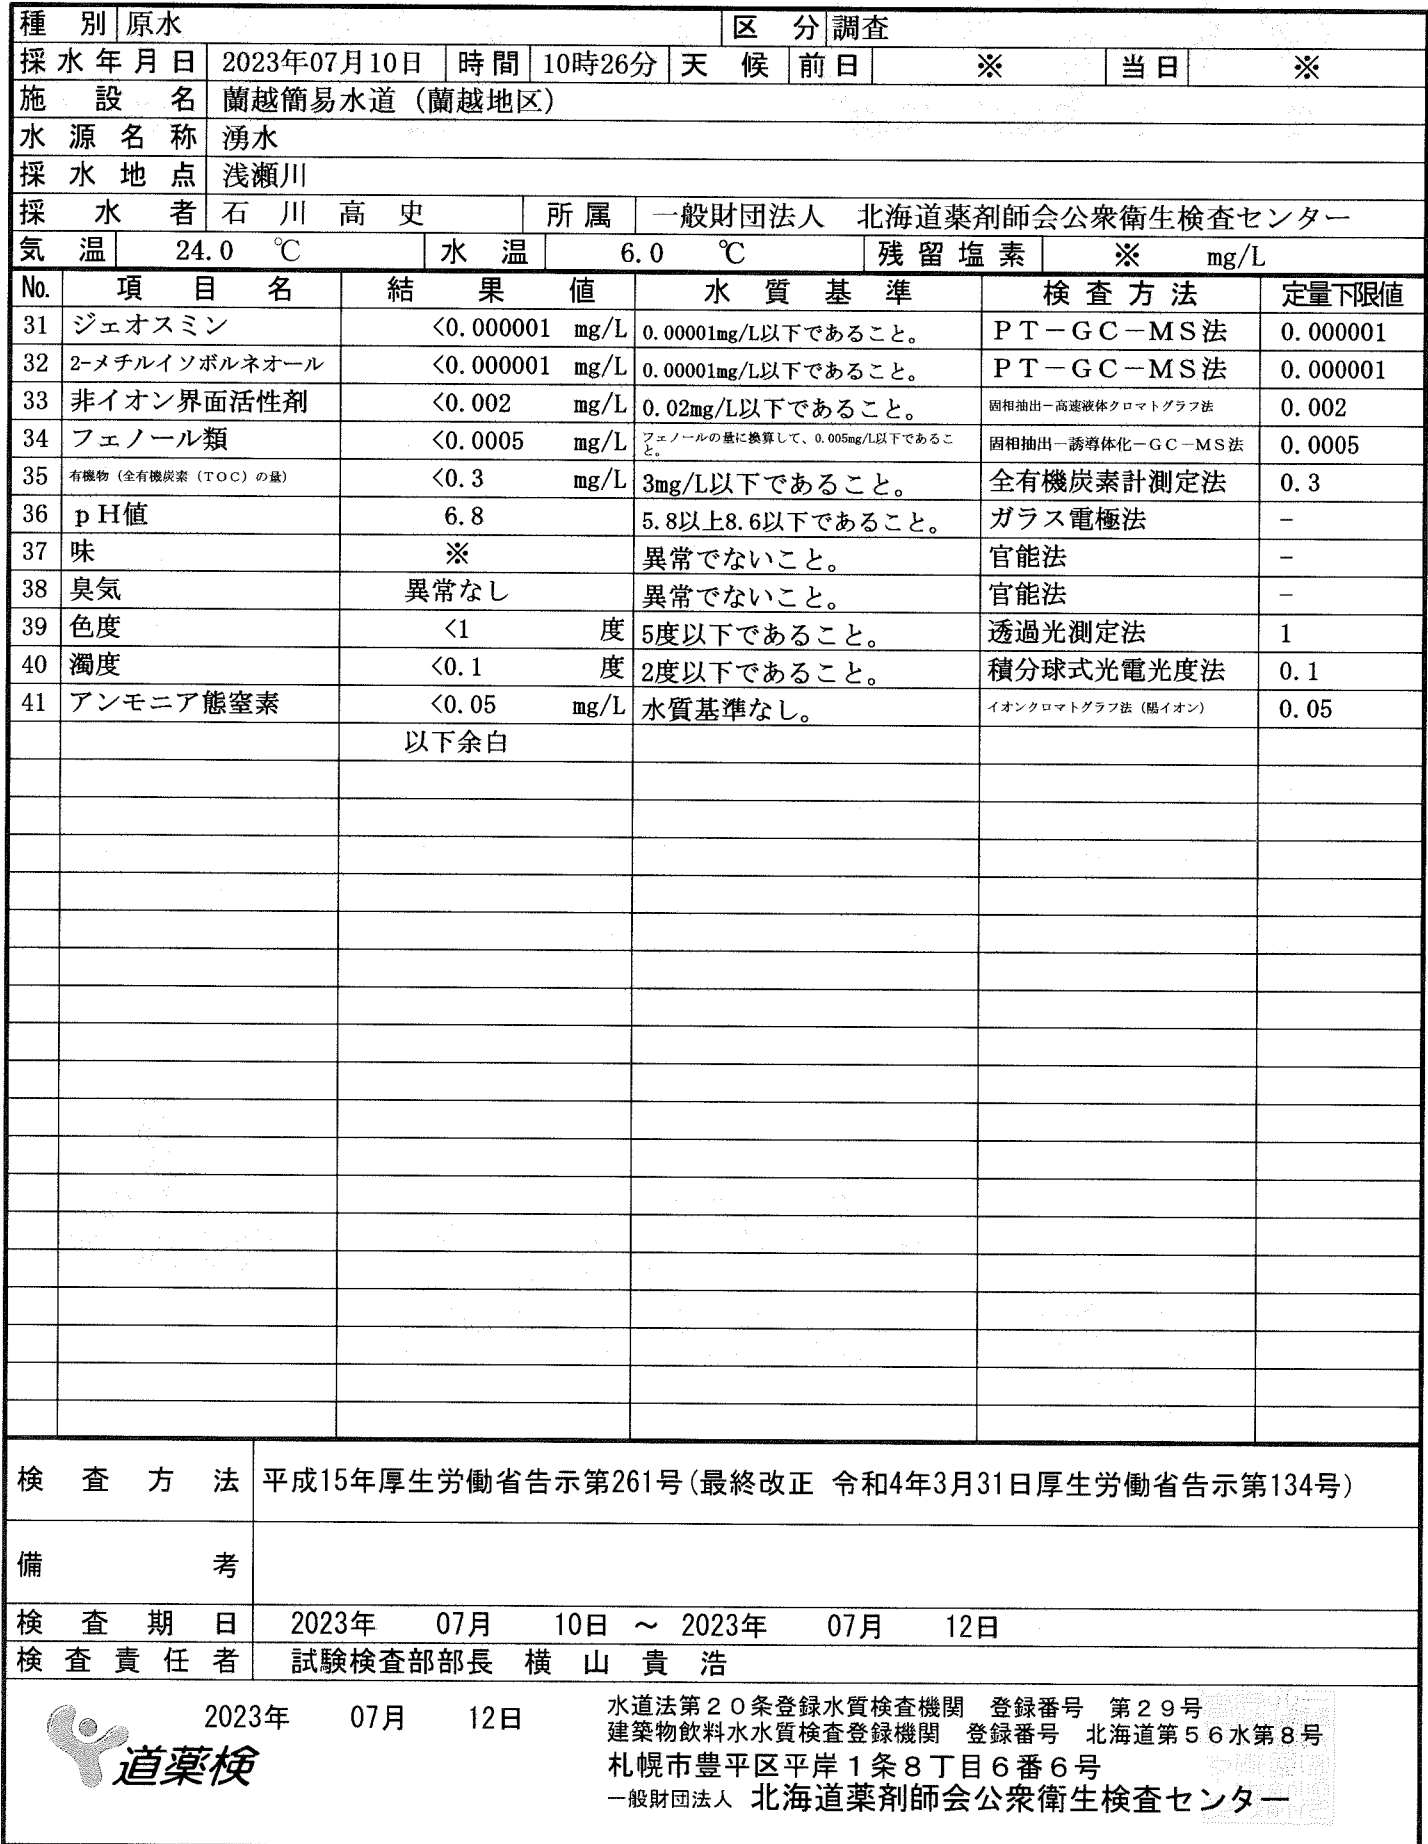 種別 原水 区分 調査
採水年月日 2023年07月10日 時間 10時26分 天候 前日 ※ 当日 ※
施設名 蘭越簡易水道（蘭越地区）
水源名称 湧水
採水地点 浅瀬川
採水者 石川高史 所属 一般財団法人 北海道薬剤師会公衆衛生検査センター
気温 24.0 ℃ 水温 6.0 ℃ 残留塩素 ※ mg/L
No. 項目名 結果値 水質基準 検査方法 定量下限値
31 ジェオスミン <0.000001 mg/L 0.00001mg/L以下であること。 ＰＴ－ＧＣ－ＭＳ法 0.000001
32 2-メチルイソボルネオール <0.000001 mg/L 0.00001mg/L以下であること。 ＰＴ－ＧＣ－ＭＳ法 0.000001
33 非イオン界面活性剤 <0.002 mg/L 0.02mg/L以下であること。 固相抽出－高速液体クロマトグラフ法 0.002
34 フェノール類 <0.0005 mg/L フェノールの量に換算して、0.005mg/L以下であるこ
と。 固相抽出－誘導体化－ＧＣ－ＭＳ法 0.0005
35 有機物（全有機炭素（ＴＯＣ）の量） <0.3 mg/L 3mg/L以下であること。 全有機炭素計測定法 0.3
36 ｐH値 6.8 5.8以上8.6以下であること。 ガラス電極法 －
37 味 ※ 異常でないこと。 官能法 －
38 臭気 異常なし 異常でないこと。 官能法 －
39 色度 <1 度 5度以下であること。 透過光測定法 1
40 濁度 <0.1 度 2度以下であること。 積分球式光電光度法 0.1
41 アンモニア態窒素 <0.05 mg/L 水質基準なし。 イオンクロマトグラフ法（陽イオン） 0.05
以下余白
検査方法 平成15年厚生労働省告示第261号（最終改正 令和4年3月31日厚生労働省告示第134号）
備考
検査期日 2023年 07月 10日 ～ 2023年 07月 12日
検査責任者 試験検査部部長 横山貴浩
2023年 07月 12日
道薬検
水道法第２０条登録水質検査機関 登録番号 第２９号
建築物飲料水水質検査登録機関 登録番号 北海道第５６水第８号
札幌市豊平区平岸１条８丁目６番６号
一般財団法人 北海道薬剤師会公衆衛生検査センター